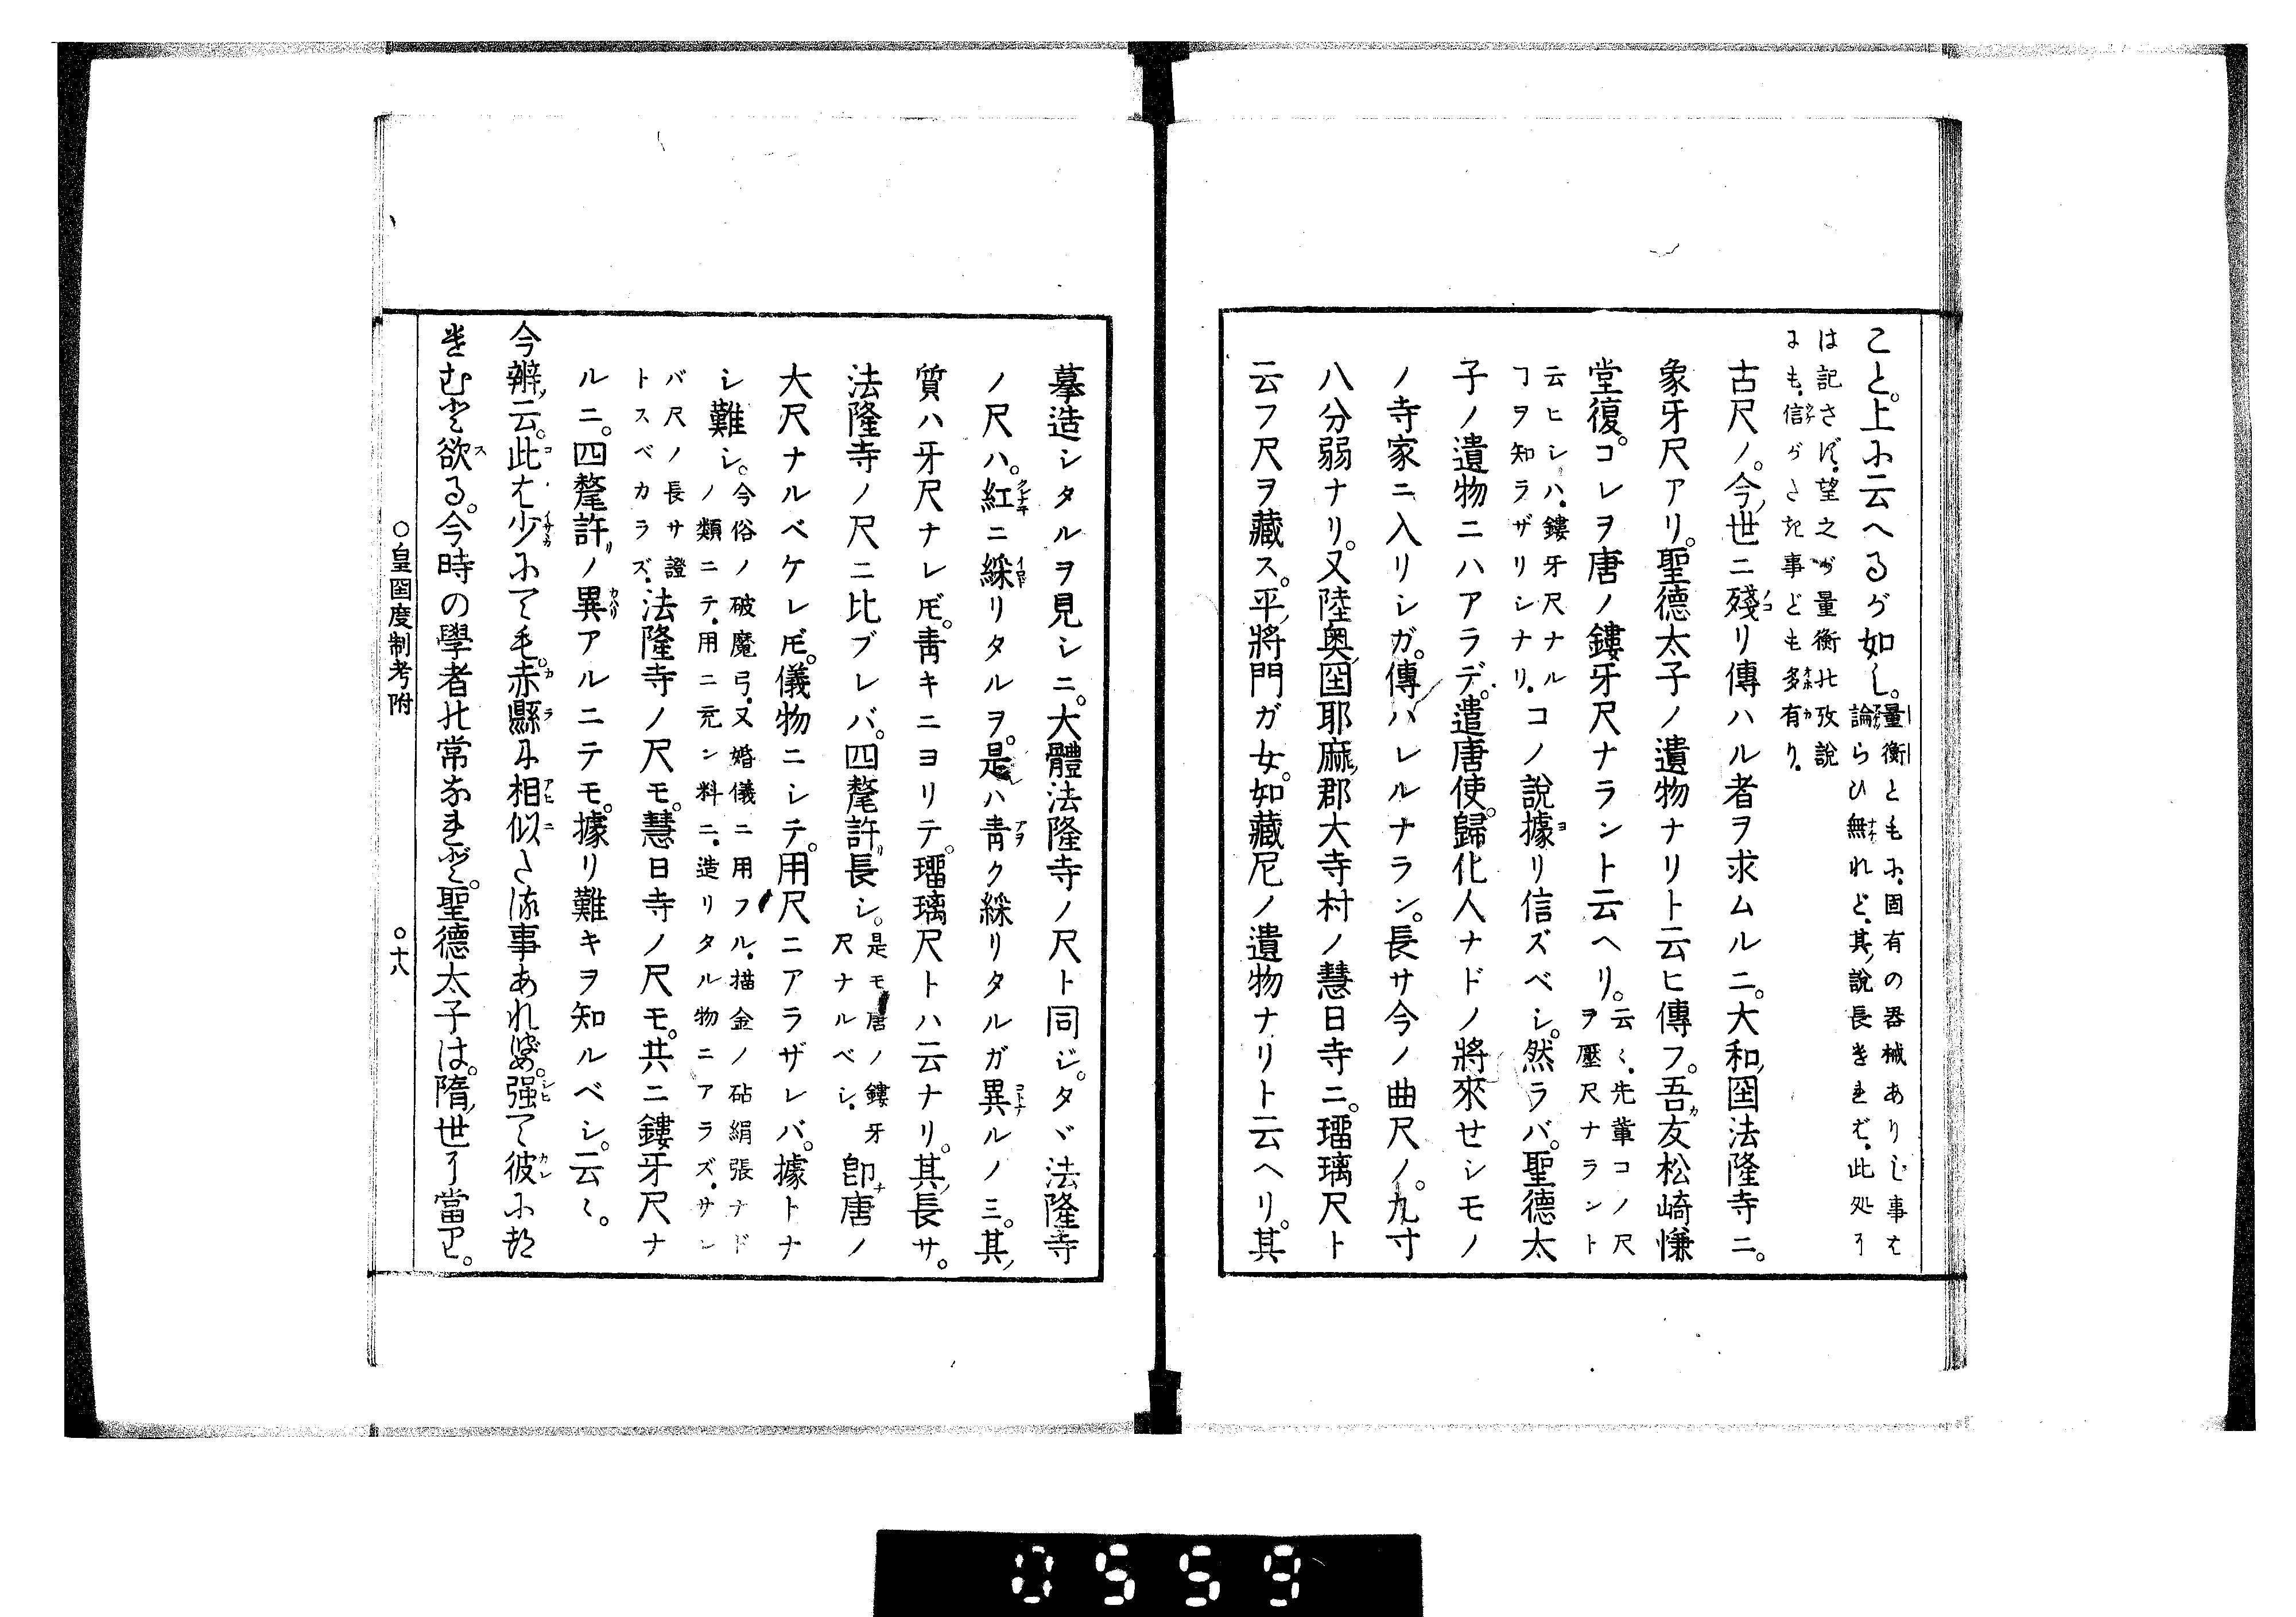 こと。上に云へるが如し。量衡ともに、固有の器械ありし事は
論らひ無れど、其説長きまで、此処に
は記さず、望之が量衡の攷説
にも、信がたき事ども多有り、
古尺ノ。今ノ世ニ殘リ傳ハル者ヲ求ムルニ。大和ノ国法隆寺ニ。
象牙尺アリ。聖德太子ノ遺物ナリト云ヒ傳フ。吾友松崎慊
堂復。コレヲ唐ノ鏤牙尺ナラント云ヘリ。云々、先輩コノ尺
ヲ壓尺ナラント
云ヒシハ、鏤牙尺ナル
ヿヲ知ラザリシナリ、コノ說據リ信ズベシ。然ラバ。聖德太
子ノ遺物ニハアラデ。遣唐使。歸化人ナドノ將來せシモノ
ノ寺家ニ入リシガ。傳ハレルナラン。長サ今ノ曲尺ノ。九寸
八分弱ナリ。又陸奥ノ国耶麻ノ郡大寺村ノ慧日寺ニ。瑠璃尺ト
云フ尺ヲ藏ス。平ノ將門ガ女。如藏尼ノ遺物ナリト云ヘリ。其
摹造シタルヲ見シニ。大體法隆寺ノ尺ト同ジ。タヾ法隆寺
ノ尺ハ。紅ニ綵リタルヲ。是レハ青ク綵リタルガ異ルノミ。其ノ
質ハ牙尺ナレ𪜈。青キニヨリテ。瑠璃尺トハ云ナリ。其ノ長サ。
法隆寺ノ尺ニ比ブレバ。四釐許リ長シ。是モ唐ノ鏤牙
尺ナルベシ、即唐ノ
大尺ナルベケレ𪜈。儀物ニシテ。用尺ニアラザレバ。據トナ
シ難シ。今俗ノ破魔弓、又婚儀ニ用フル、描金ノ砧絹張ナド
ノ類ニテ、用ニ充ン料ニ、造リタル物ニアラズ、サレ
バ尺ノ長サ證
トスベカラズ、法隆寺ノ尺モ。慧日寺ノ尺モ。共ニ鏤牙尺ナ
ルニ。四釐許リノ異アルニテモ。據リ難キヲ知ルベシ。云々。
今辨ノ云。此は少にても。赤縣に相似たる事あれば。强て彼に郄
きむと欲る。今時の學者の常なれど。聖德太子は。隋ノ世に當れり。
○皇国度制考附　○十八
0559